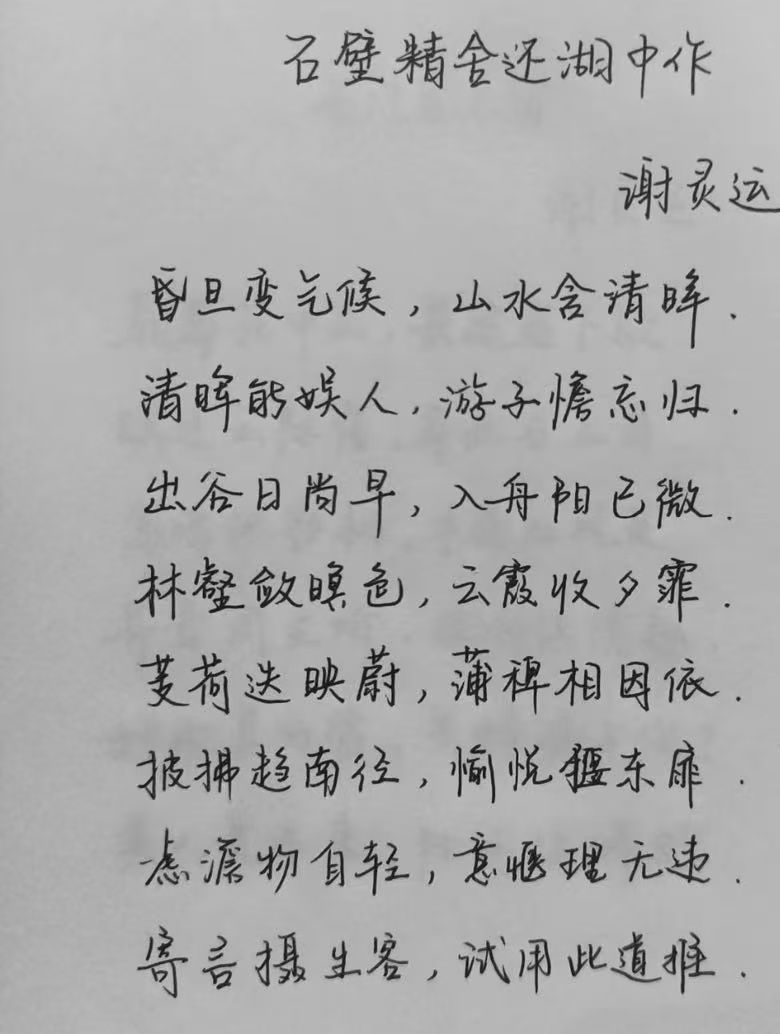 石壁精舍还湖中作
谢灵运
昏旦变气候，山水含清晖．
清晖能娱人，游子憺忘归．
出谷日尚早，入舟阳已微．
林壑敛暝色，云霞收夕霏．
芰荷迭映蔚，蒲稗相因依．
披拂趋南径，愉悦偃东扉．
虑澹物自轻，意惬理无违．
寄言摄生客，试用此道推．